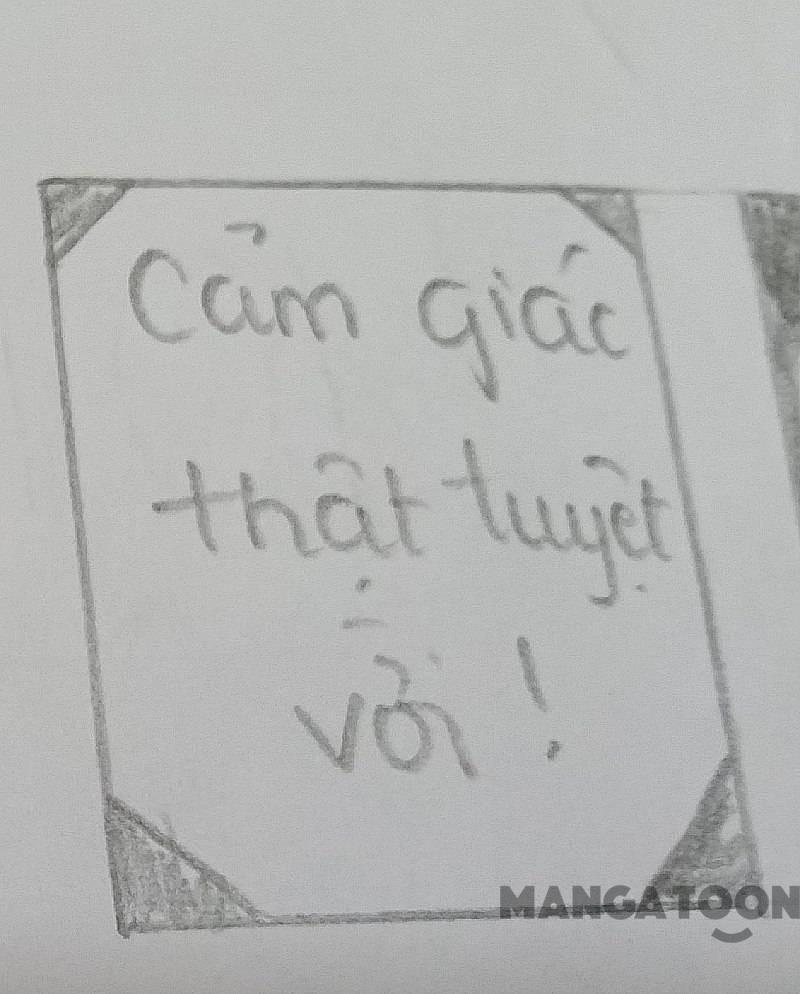 Cảm giác
thật tuyệt
vời !
MANGATOON